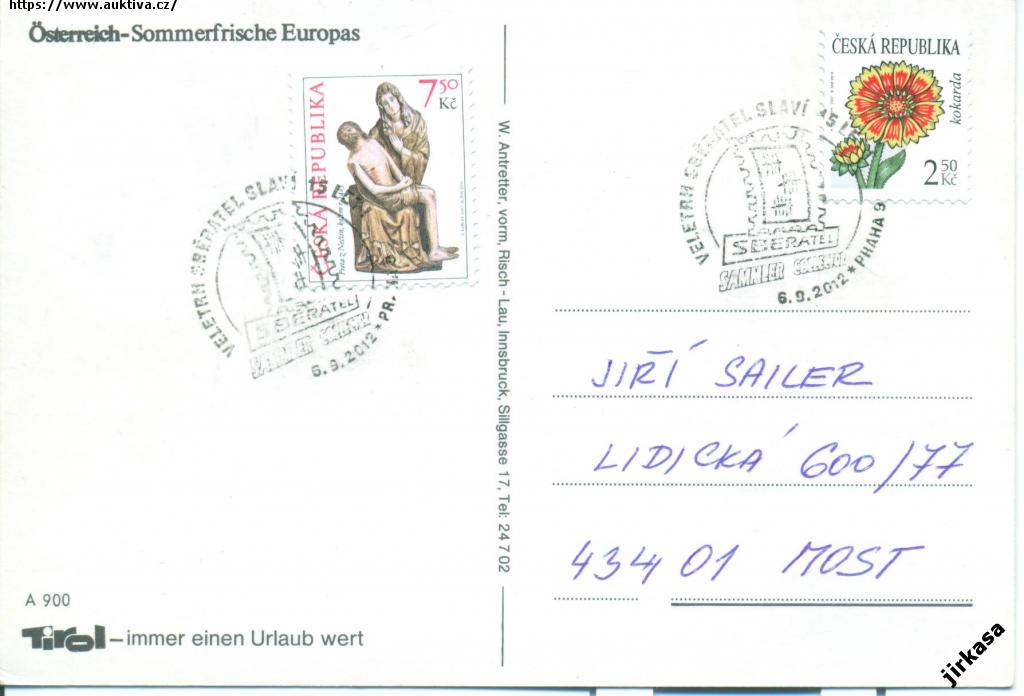 https://www.auktiva.cz/
Österreich-Sommerfrische Europas
7,50 Kč
ČESKÁ REPUBLIKA
VELETRH SBĚRATEL SLAVÍ 15 LET
SBĚRATEL
SAMMLER COLLECTOR
6.9.2012 * PRA
ČESKÁ REPUBLIKA
kokarda
2,50 Kč
VELETRH SBĚRATEL SLAVÍ 15 LE
SBĚRATEL
SAMMLER COLLECTOR
6.9.2012 * PRAHA 9
W. Antretter, vorm. Risch - Lau, Innsbruck, Sillgasse 17, Tel: 24 7 02
JIŘÍ SAILER
LIDICKÁ 600/77
434 01 MOST
A 900
Tirol – immer einen Urlaub wert
jirkasa